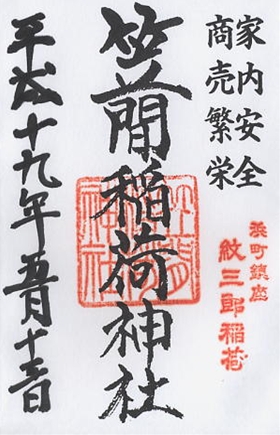 家内安全
商売繁栄
浜町鎮座
紋三郎稲荷
笠間稲荷神社
平成十九年五月十三日